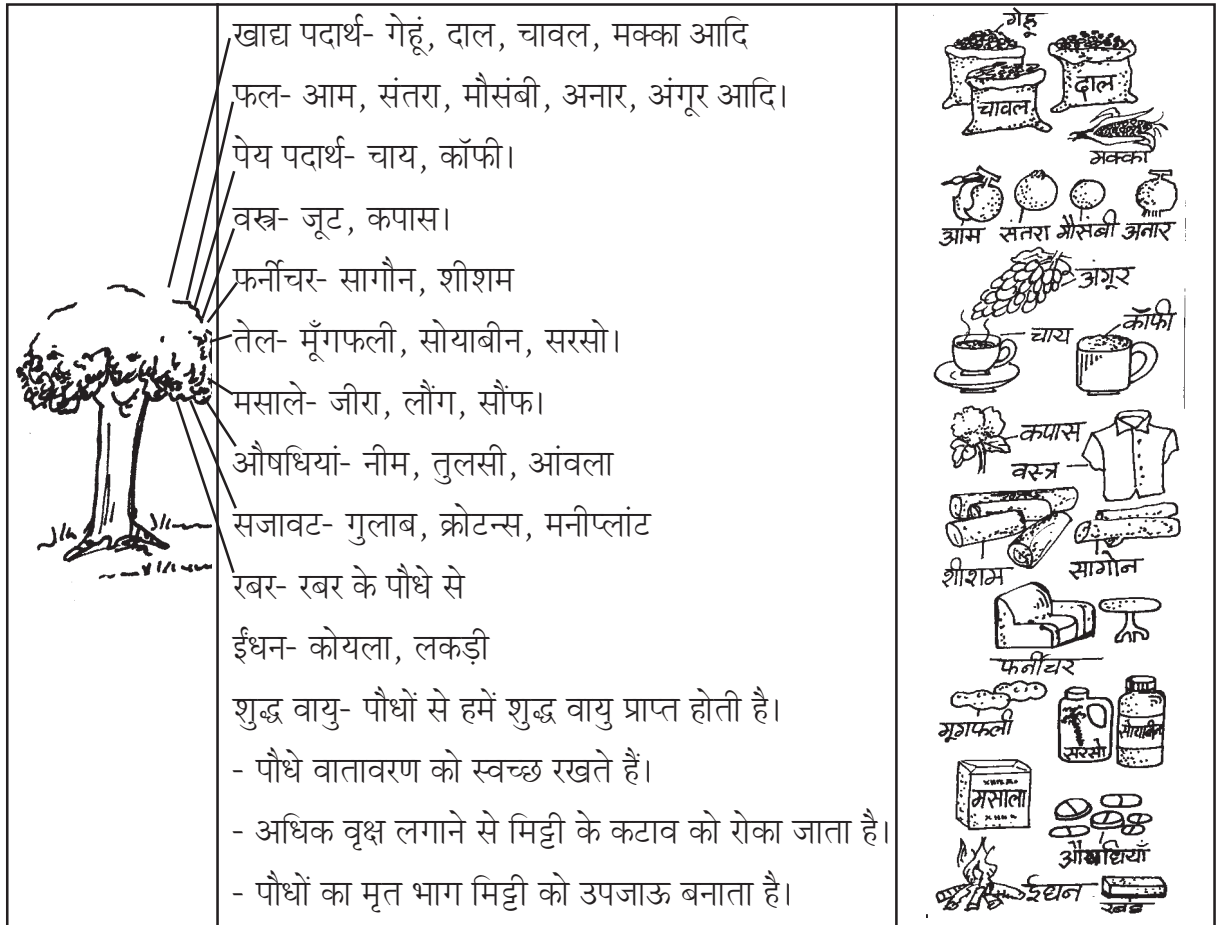 खाद्य पदार्थ- गेहूं, दाल, चावल, मक्का आदि
फल- आम, संतरा, मौसंबी, अनार, अंगूर आदि।
पेय पदार्थ- चाय, कॉफी।
वस्त्र- जूट, कपास।
फर्नीचर- सागौन, शीशम
तेल- मूँगफली, सोयाबीन, सरसो।
मसाले- जीरा, लौंग, सौंफ।
औषधियां- नीम, तुलसी, आंवला
सजावट- गुलाब, क्रोटन्स, मनीप्लांट
रबर- रबर के पौधे से
ईंधन- कोयला, लकड़ी
शुद्ध वायु- पौधों से हमें शुद्ध वायु प्राप्त होती है।
- पौधे वातावरण को स्वच्छ रखते हैं।
- अधिक वृक्ष लगाने से मिट्टी के कटाव को रोका जाता है।
- पौधों का मृत भाग मिट्टी को उपजाऊ बनाता है।
गेहूं
दाल
चावल
मक्का
आम संतरा मौसंबी अनार
अंगूर
कॉफी
चाय
कपास
वस्त्र
शीशम सागोन
फर्नीचर
मूगफली
सरसो सोयाबीन
मसाला
औषधियाँ
ईधन